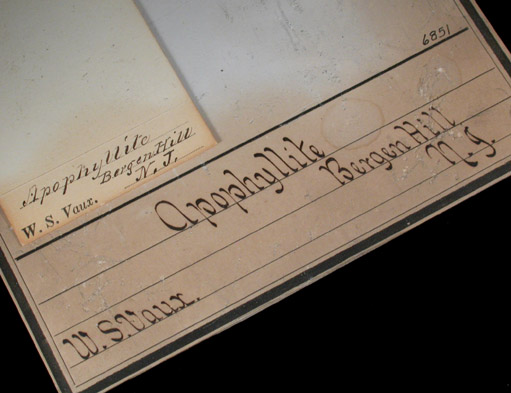 Apophyllite
Bergen Hill
N. J.
W. S. Vaux.
6851
Apophyllite
Bergen Hill
N. J.
W. S. Vaux.